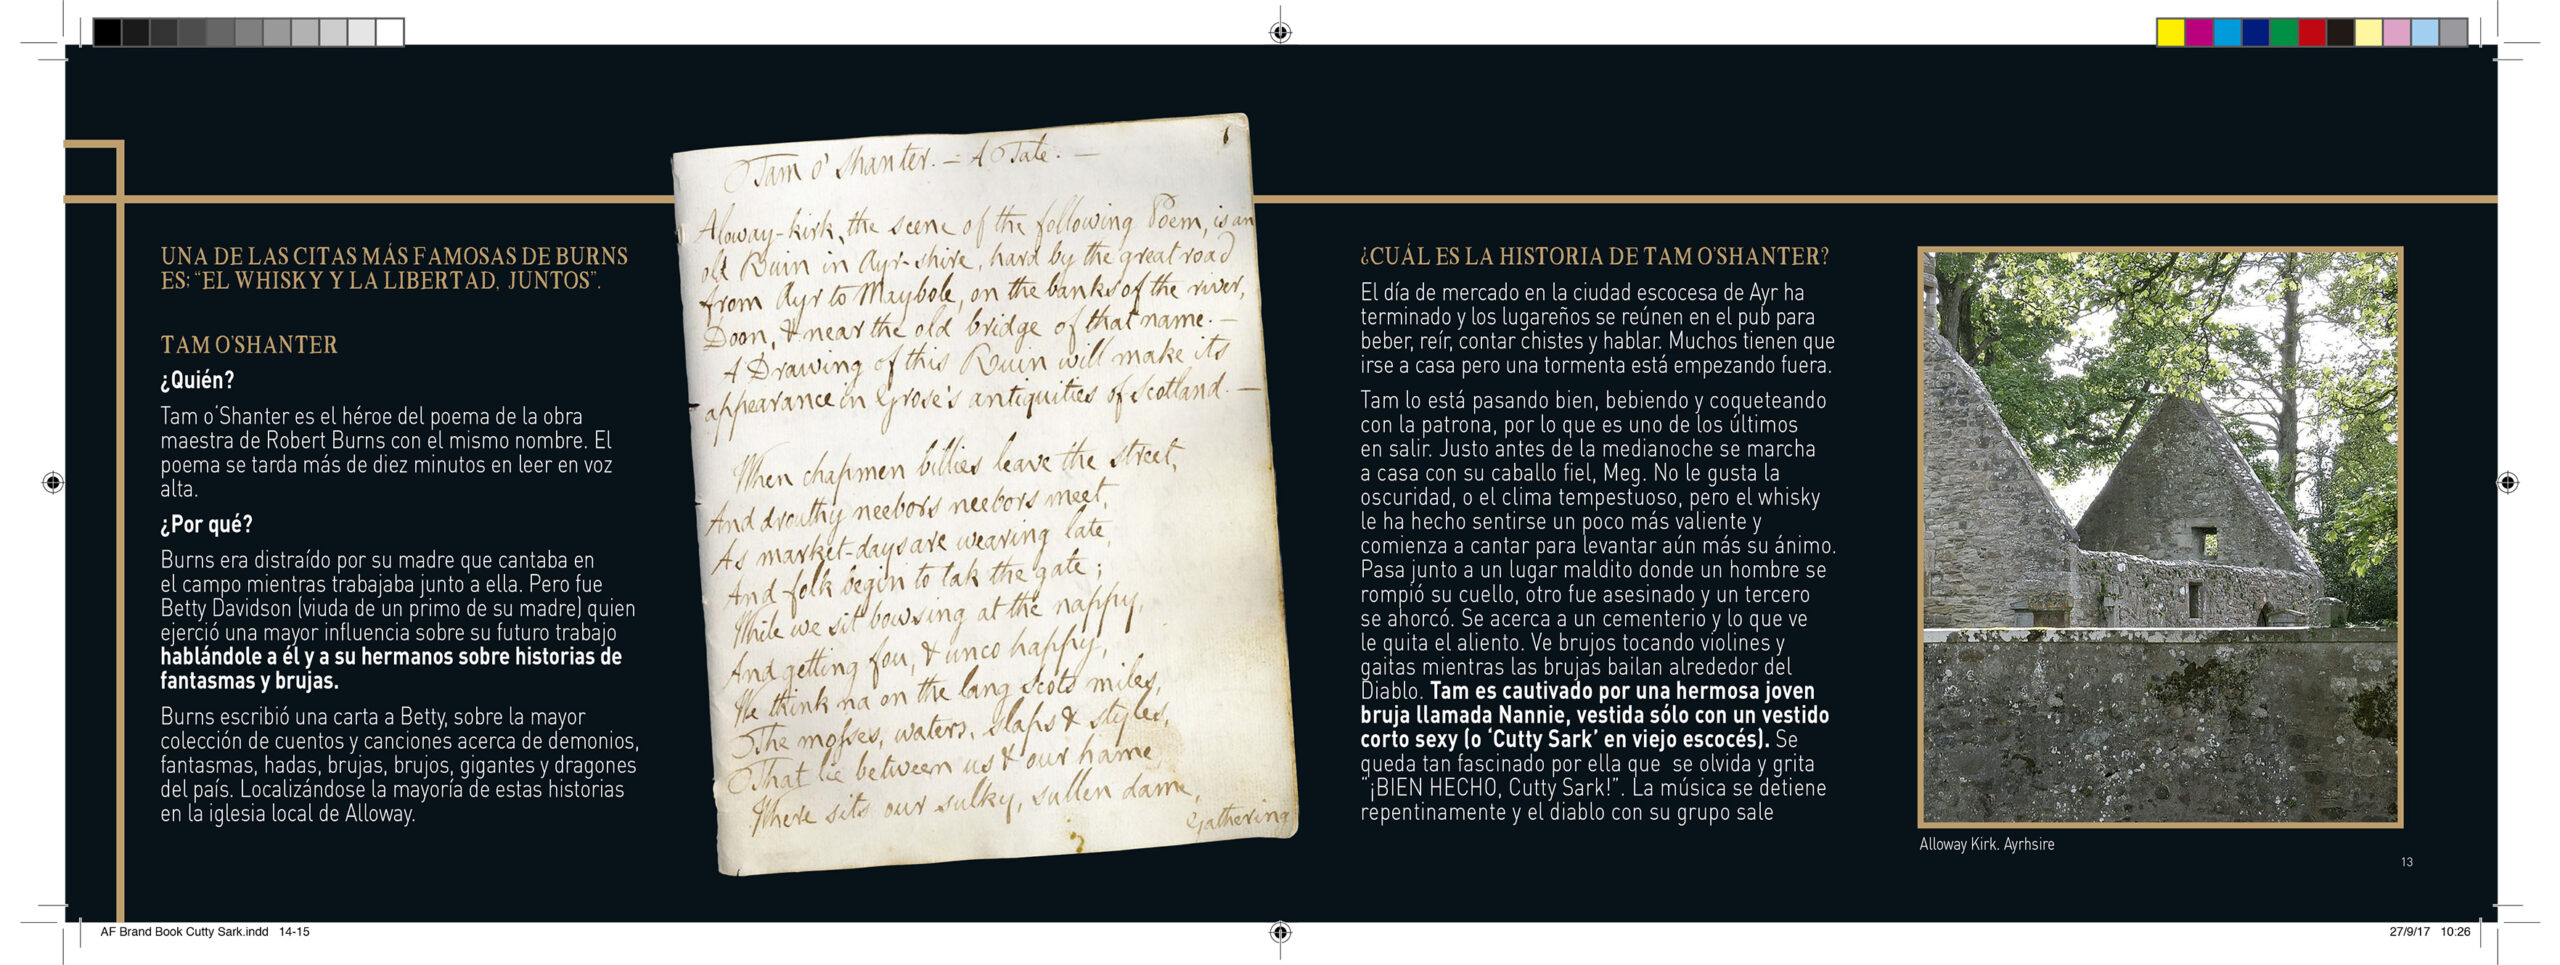 UNA DE LAS CITAS MÁS FAMOSAS DE BURNS
ES: “EL WHISKY Y LA LIBERTAD, JUNTOS”.
TAM O'SHANTER
¿Quién?
Tam o'Shanter es el héroe del poema de la obra
maestra de Robert Burns con el mismo nombre. El
poema se tarda más de diez minutos en leer en voz
alta.
¿Por qué?
Burns era distraído por su madre que cantaba en
el campo mientras trabajaba junto a ella. Pero fue
Betty Davidson (viuda de un primo de su madre) quien
ejerció una mayor influencia sobre su futuro trabajo
hablándole a él y a su hermanos sobre historias de
fantasmas y brujas.
Burns escribió una carta a Betty, sobre la mayor
colección de cuentos y canciones acerca de demonios,
fantasmas, hadas, brujas, brujos, gigantes y dragones
del país. Localizándose la mayoría de estas historias
en la iglesia local de Alloway.
1
Tam o' Shanter. = A Tale. —
Aloway-kirk, the scene of the following Poem, is an
old Ruin in Ayr-shire, hard by the great road
from Ayr to Maybole, on the banks of the river,
Doon, & near the old bridge of that name. —
A Drawing of this Ruin will make its
appearance in Grose's antiquities of Scotland. —
When chapmen billies leave the street,
And drouthy neebors neebors meet,
As market-days are wearing late,
And folk begin to tak the gate;
While we sit bowsing at the nappy,
And getting fou, & unco happy,
We think na on the lang Scots miles,
The mosses, waters, slaps & styles,
That lie between us & our hame,
Where sits our sulky, sullen dame,
Gathering
¿CUÁL ES LA HISTORIA DE TAM O'SHANTER?
El día de mercado en la ciudad escocesa de Ayr ha
terminado y los lugareños se reúnen en el pub para
beber, reír, contar chistes y hablar. Muchos tienen que
irse a casa pero una tormenta está empezando fuera.
Tam lo está pasando bien, bebiendo y coqueteando
con la patrona, por lo que es uno de los últimos
en salir. Justo antes de la medianoche se marcha
a casa con su caballo fiel, Meg. No le gusta la
oscuridad, o el clima tempestuoso, pero el whisky
le ha hecho sentirse un poco más valiente y
comienza a cantar para levantar aún más su ánimo.
Pasa junto a un lugar maldito donde un hombre se
rompió su cuello, otro fue asesinado y un tercero
se ahorcó. Se acerca a un cementerio y lo que ve
le quita el aliento. Ve brujos tocando violines y
gaitas mientras las brujas bailan alrededor del
Diablo. Tam es cautivado por una hermosa joven
bruja llamada Nannie, vestida sólo con un vestido
corto sexy (o ‘Cutty Sark’ en viejo escocés). Se
queda tan fascinado por ella que se olvida y grita
“¡BIEN HECHO, Cutty Sark!”. La música se detiene
repentinamente y el diablo con su grupo sale
Alloway Kirk. Ayrhsire
13
AF Brand Book Cutty Sark.indd 14-15
27/9/17 10:26